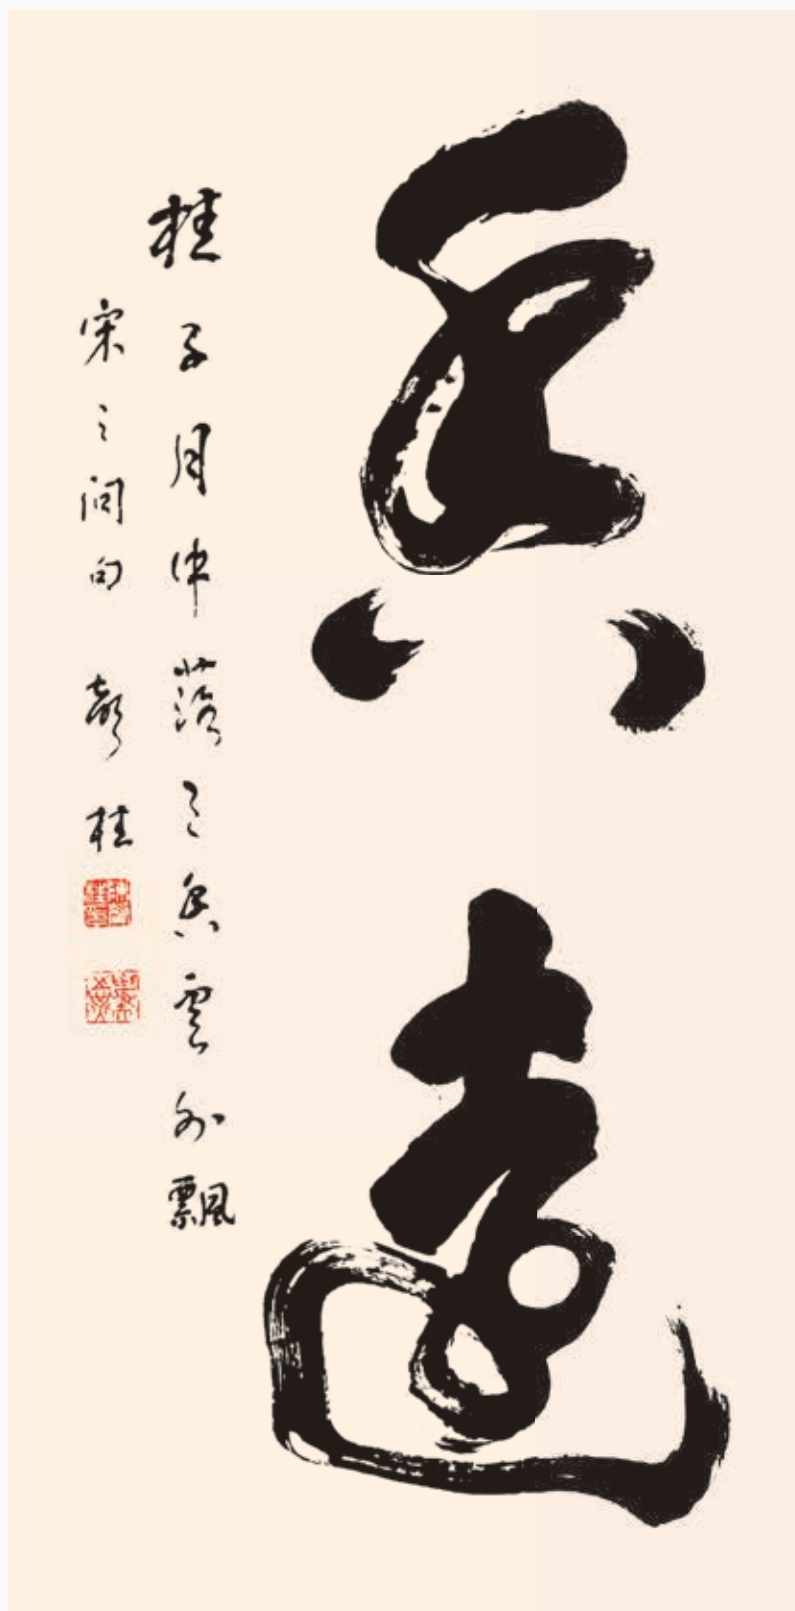 香遠
桂子月中落天香雲外飄
宋之問句 彭桂